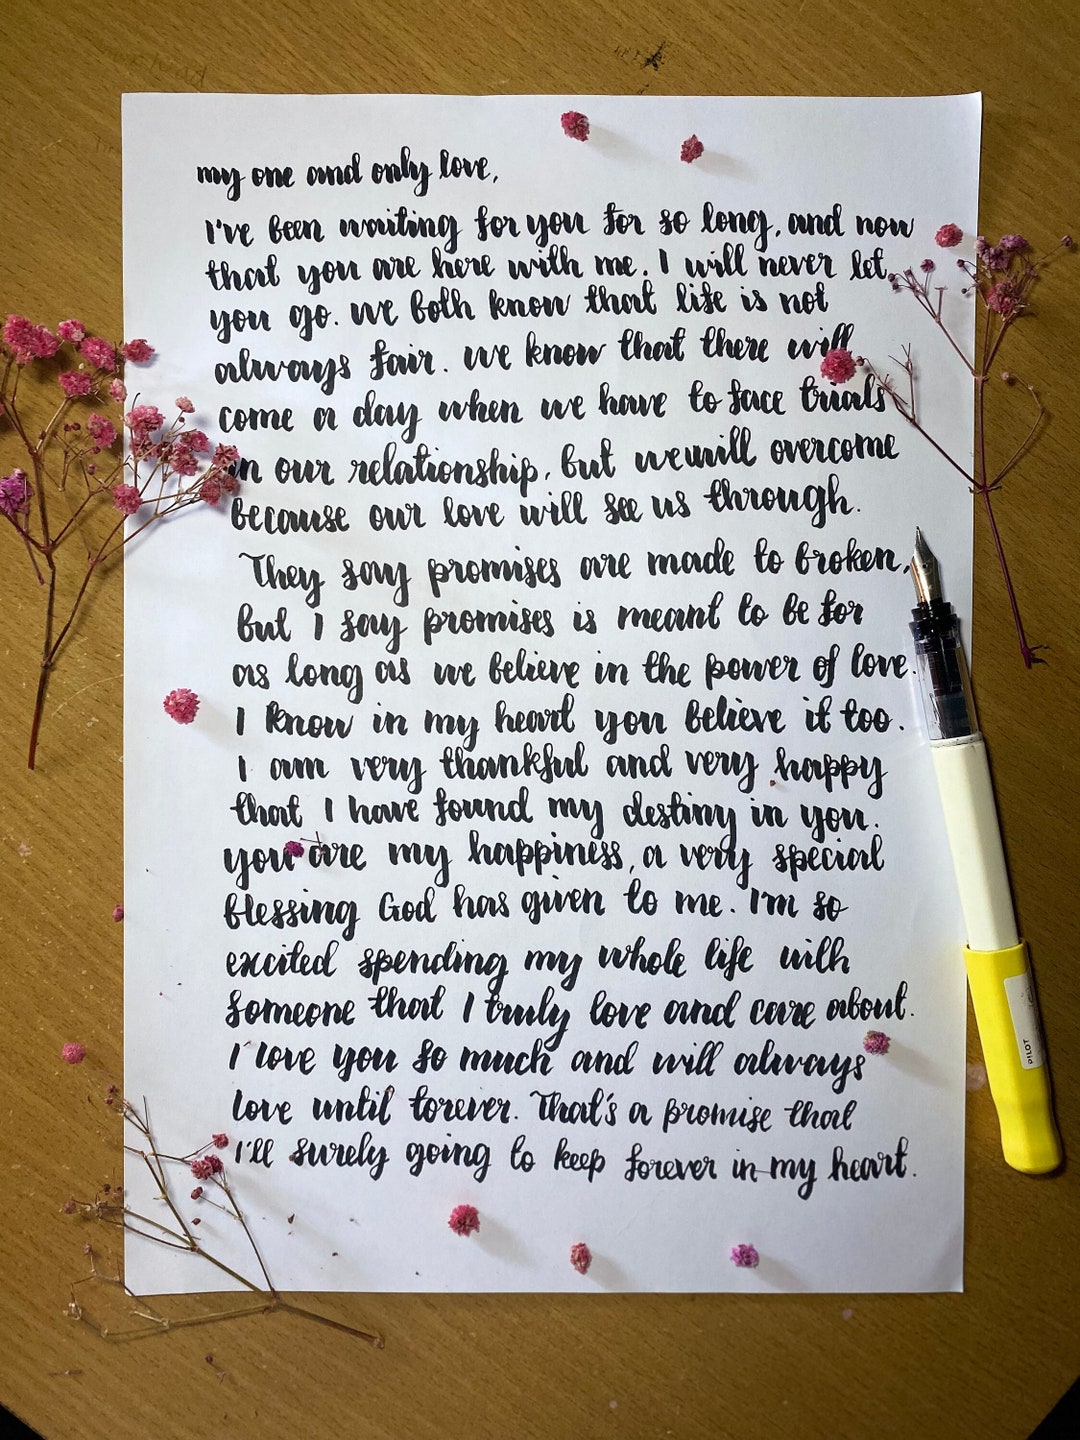 my one and only love,
I've been waiting for you for so long, and now
that you are here with me. I will never let
you go. we both know that life is not
always fair. we know that there will
come a day when we have to face trials
in our relationship, but we will overcome
because our love will see us through.
They say promises are made to broken,
but I say promises is meant to be for
as long as we believe in the power of love.
I know in my heart you believe it too.
I am very thankful and very happy
that I have found my destiny in you.
you are my happiness, a very special
blessing God has given to me. I'm so
excited spending my whole life with
someone that I truly love and care about.
I love you so much and will always
love until forever. That's a promise that
I'll surely going to keep forever in my heart.
PILOT